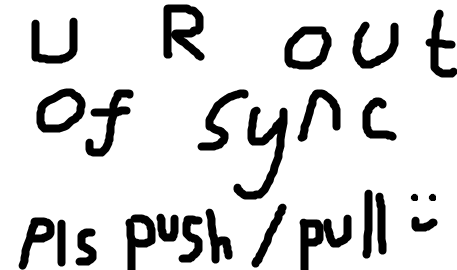 U R out
of sync
pls push/pull :)